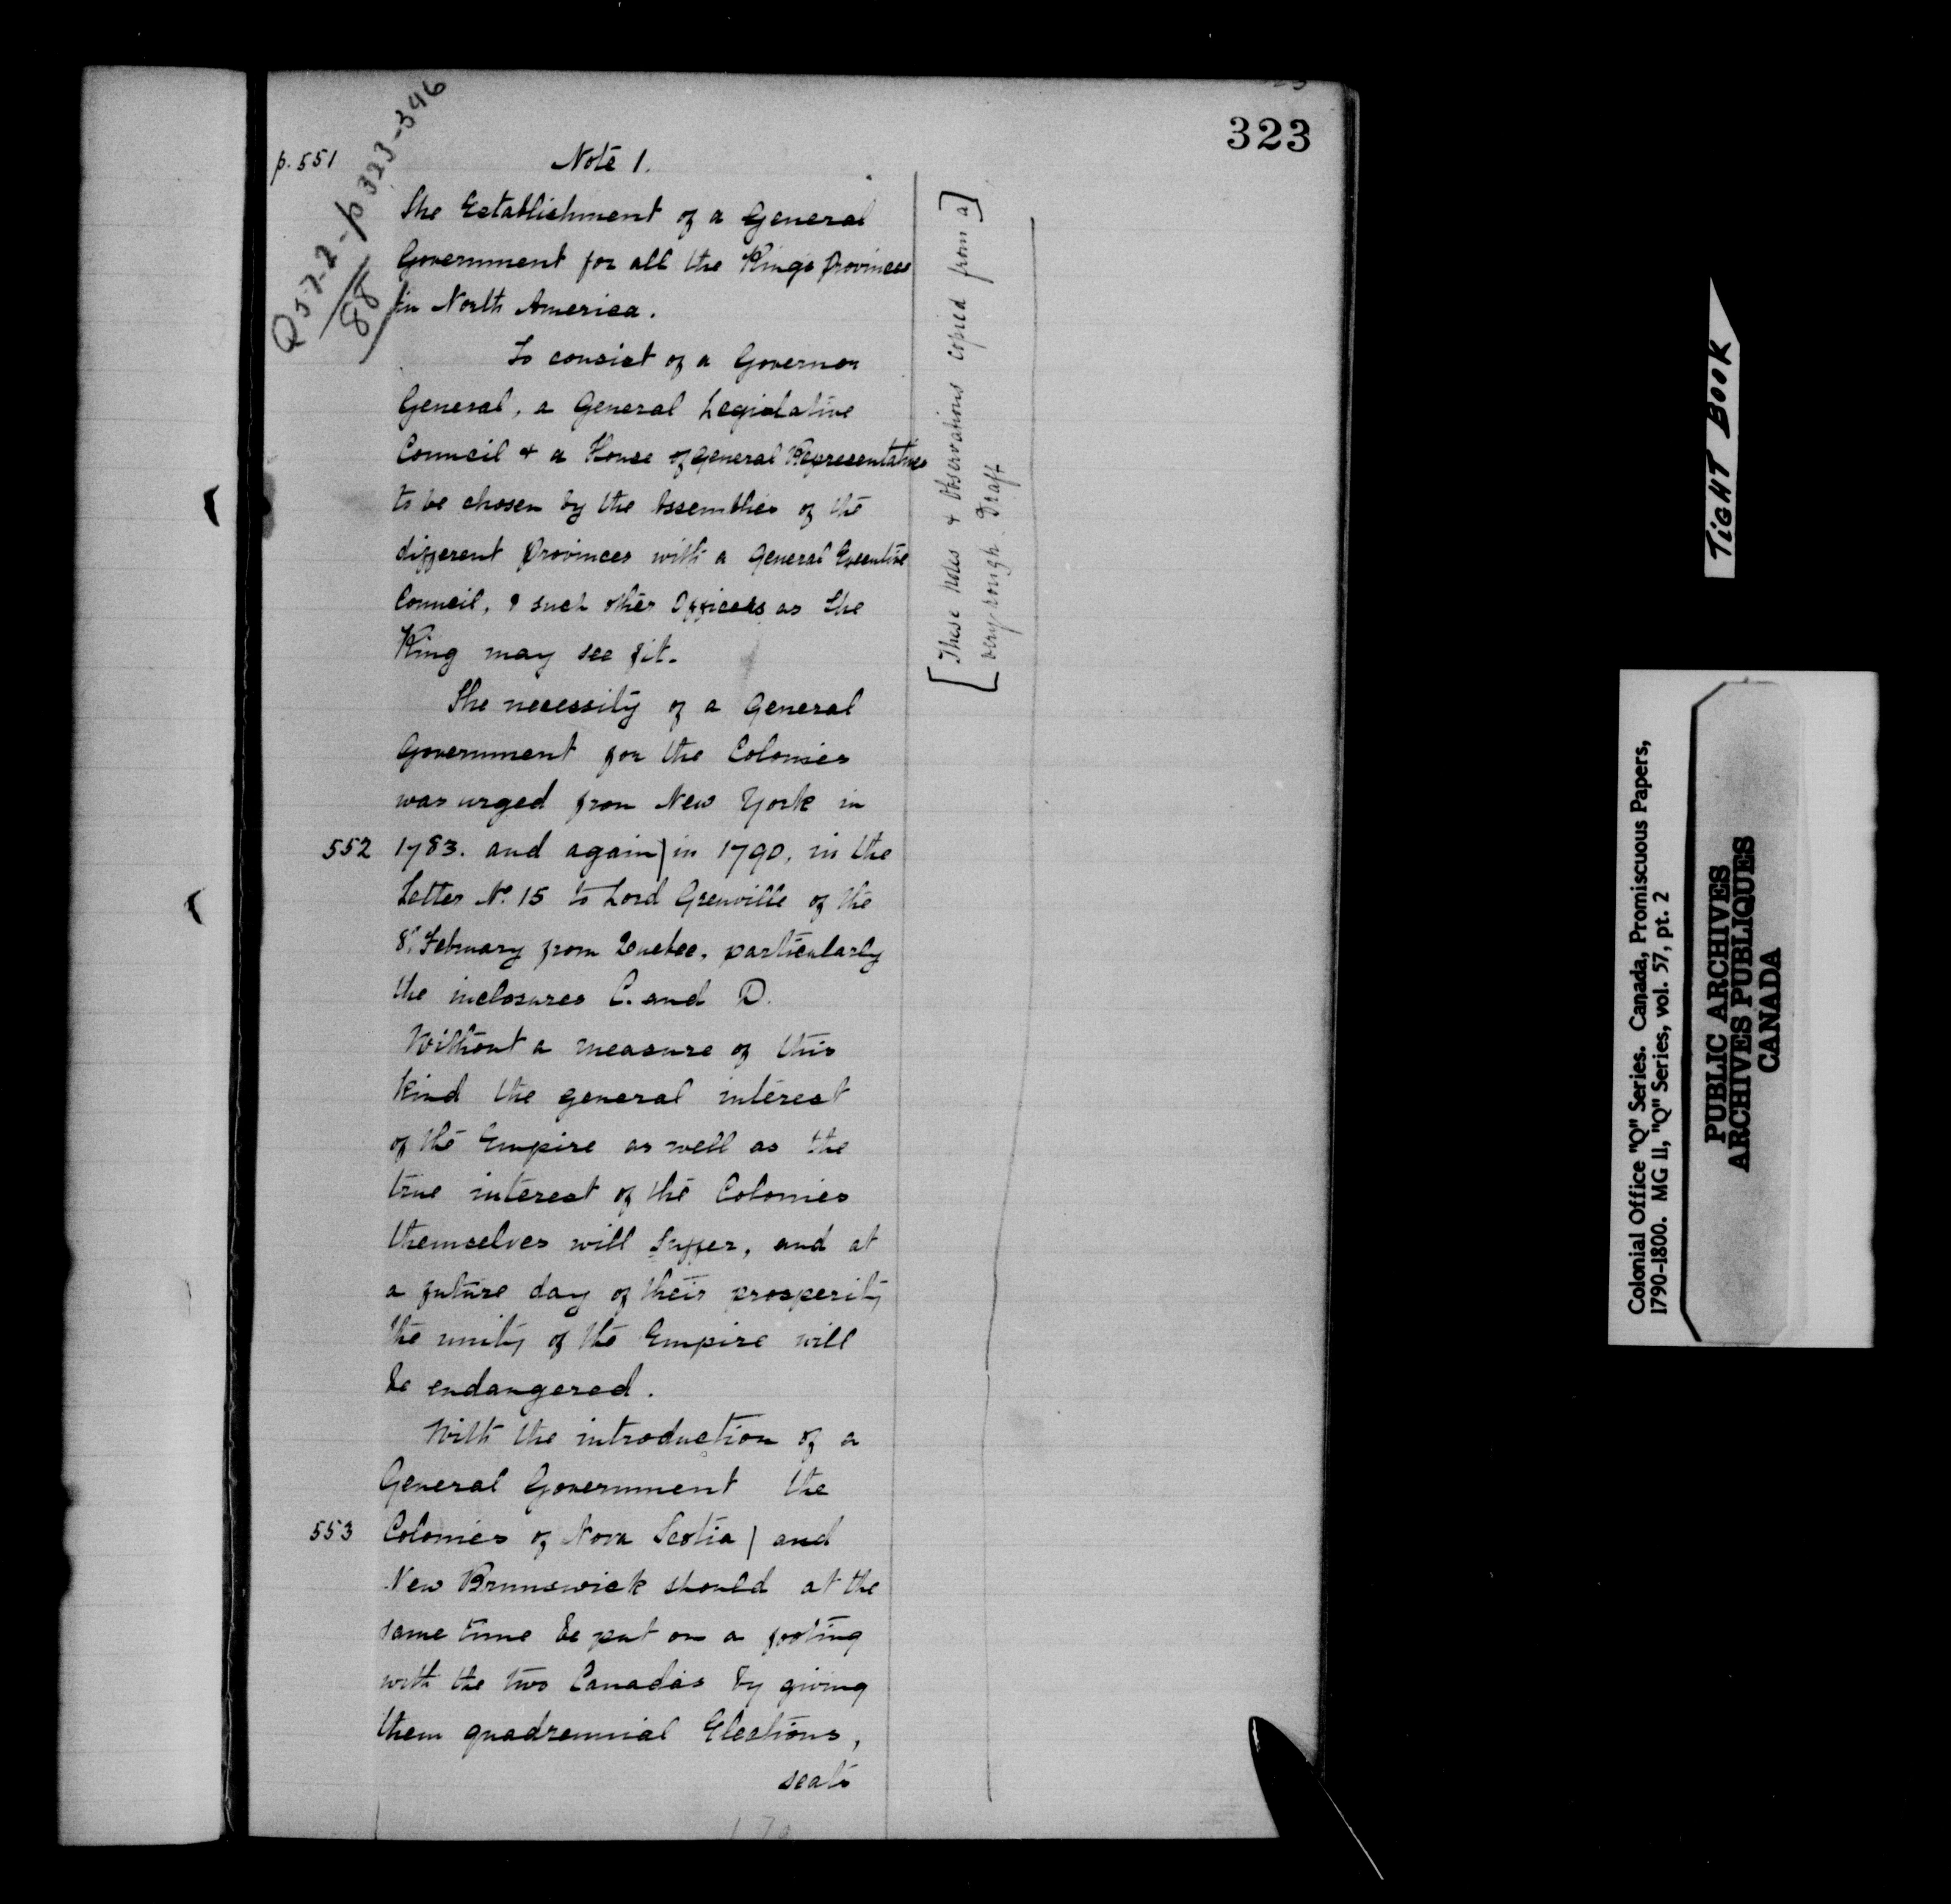 323
p. 551
Q 57-2-p 323-346
88
Note 1.
The Establishment of a General
Government for all the King's Provinces
in North America.
To consist of a Governor
General, a General Legislative
Council & a House of General Representatives
to be chosen by the Assemblies of the
different Provinces with a General Executive
Council, & such other Officers as the
King may see fit.
The necessity of a General
Government for the Colonies
was urged from New York in
552 1783. and again) in 1790, in the
Letter No. 15 to Lord Grenville of the
8th February from Quebec, particularly
the inclosures C. and D.
Without a measure of this
kind the general interest
of the Empire as well as the
true interest of the Colonies
themselves will suffer, and at
a future day of their prosperity
the unity of the Empire will
be endangered.
With the introduction of a
General Government the
553 Colonies of Nova Scotia ) and
New Brunswick should at the
same time be put on a footing
with the two Canadas by giving
them quadrennial Elections,
seats
[These Notes & Observations copied from a]
[very rough Draft
TIGHT BOOK
Colonial Office "Q" Series. Canada, Promiscuous Papers,
1790-1800. MG 11, "Q" Series, vol. 57, pt. 2
PUBLIC ARCHIVES
ARCHIVES PUBLIQUES
CANADA